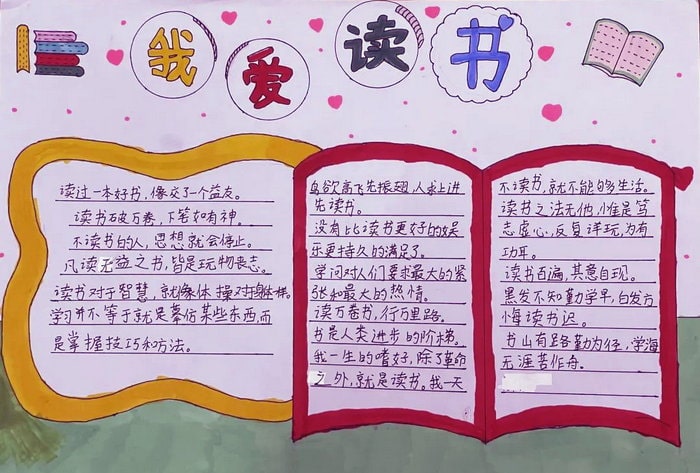 我爱读书
读过一本好书，像交了一个益友。
读书破万卷，下笔如有神。
不读书的人，思想就会停止。
凡读无益之书，皆是玩物丧志。
读书对于智慧，就像体操对于身体一样。
学习并不等于就是摹仿某些东西，而
是掌握技巧和方法。
鸟欲高飞先振翅，人求上进
先读书。
没有比读书更好的娱
乐更持久的满足了。
学问对人们要求最大的紧
张和最大的热情。
读万卷书，行万里路。
书是人类进步的阶梯。
我一生的嗜好，除了革命
之外，就是读书。我一天
不读书，就不能够生活。
读书之法无他，惟是笃
志虚心，反复详玩，为有
功耳。
读书百遍，其意自现。
黑发不知勤学早，白发方
悔读书迟。
书山有路勤为径，学海
无涯苦作舟。